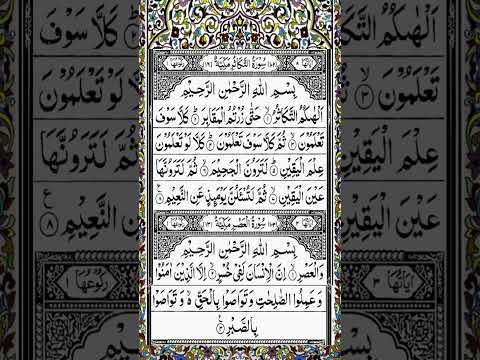 سُوْرَةُ التَّكَاثُرِ مَكِّيَّةٌ
بِسْمِ اللّٰهِ الرَّحْمٰنِ الرَّحِيْمِ
اَلْهٰىكُمُ التَّكَاثُرُ ۙ۱ حَتّٰى زُرْتُمُ الْمَقَابِرَ ؕ۲ كَلَّا سَوْفَ
تَعْلَمُوْنَ ۙ۳ ثُمَّ كَلَّا سَوْفَ تَعْلَمُوْنَ ؕ۴ كَلَّا لَوْ تَعْلَمُوْنَ
عِلْمَ الْيَقِيْنِ ؕ۵ لَتَرَوُنَّ الْجَحِيْمَ ۙ۶ ثُمَّ لَتَرَوُنَّهَا
عَيْنَ الْيَقِيْنِ ۙ۷ ثُمَّ لَتُسْـَٔلُنَّ يَوْمَىِٕذٍ عَنِ النَّعِيْمِ ۸
سُوْرَةُ الْعَصْرِ مَكِّيَّةٌ
بِسْمِ اللّٰهِ الرَّحْمٰنِ الرَّحِيْمِ
وَالْعَصْرِ ۙ۱ اِنَّ الْاِنْسَانَ لَفِيْ خُسْرٍ ۙ۲ اِلَّا الَّذِيْنَ اٰمَنُوْا
وَعَمِلُوا الصّٰلِحٰتِ وَتَوَاصَوْا بِالْحَقِّ ۙ۬ وَتَوَاصَوْا
بِالصَّبْرِ ۳